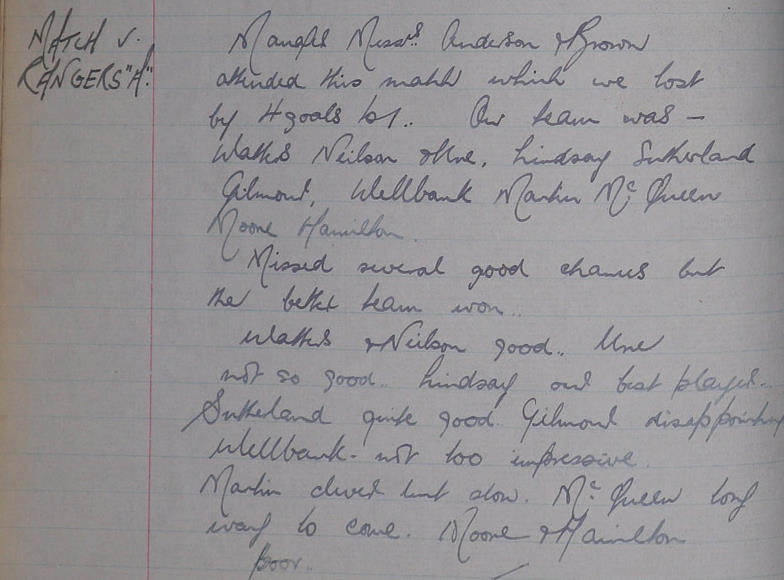 MATCH v.
RANGERS "A".
Messrs. Anderson & Brown
attended this match which we lost
by 4 goals to 1. Our team was -
Watters Neilson & Ure, Lindsay Sutherland
Gilmour, Wellbank Martin McQueen
Moore Hamilton.
Missed several good chances but
the better team won.
Watters & Neilson good. Ure
not so good. Lindsay our best player.
Sutherland quite good. Gilmour disappointing
Wellbank - not too impressive.
Martin clever but slow. McQueen long
way to come. Moore & Hamilton
poor.